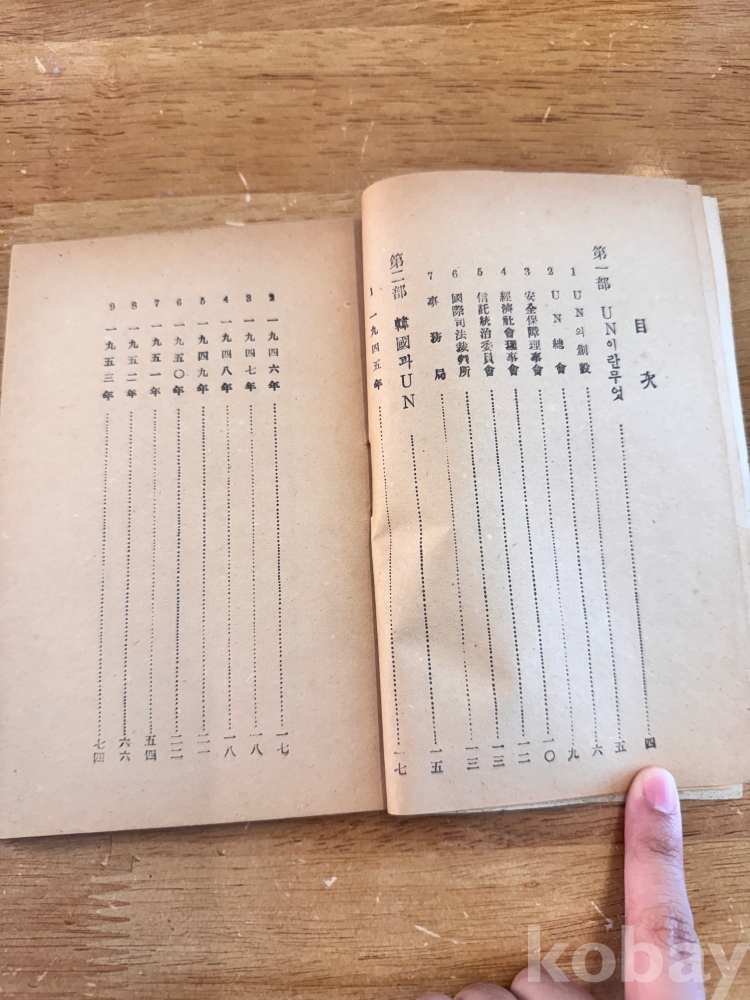 目次
第一部 UN이란무엇 四
1 UN의創設 五
2 UN總會 六
3 安全保障理事會 九
4 經濟社會理事會 一〇
5 信託統治委員會 一二
6 國際司法裁判所 一三
7 事務局 一三
第二部 韓國과UN 一五
1 一九四五年 一七
2 一九四六年 一七
3 一九四七年 一八
4 一九四八年 一八
5 一九四九年 二一
6 一九五〇年 二二
7 一九五一年 五四
8 一九五二年 六六
9 一九五三年 七四
kobay